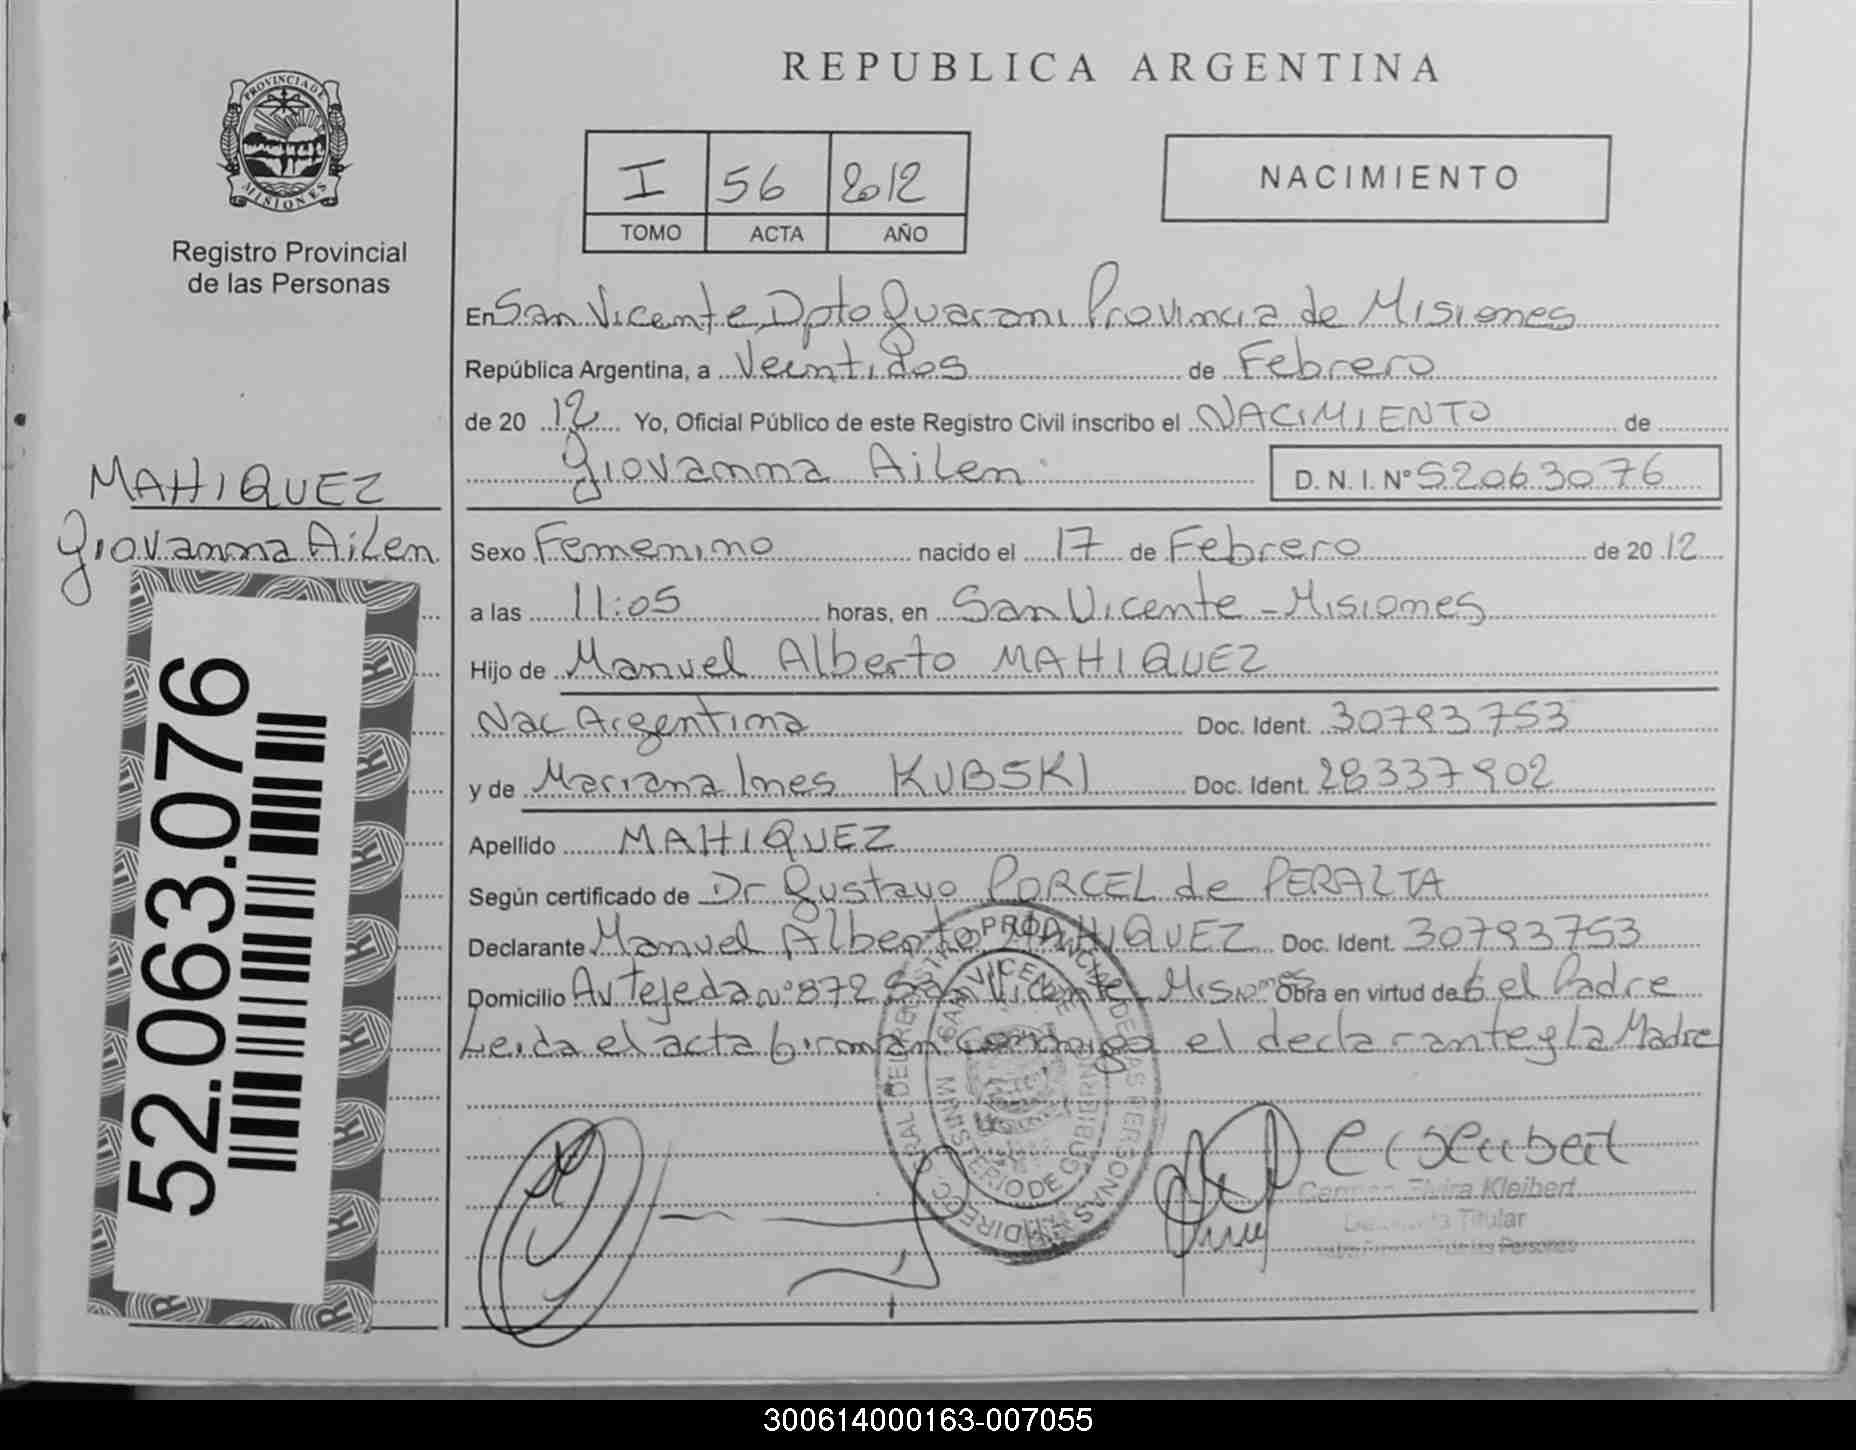 PROVINCIA DE
MISIONES
Registro Provincial
de las Personas
REPUBLICA ARGENTINA
I 56 2012
TOMO ACTA AÑO
NACIMIENTO
En San Vicente Dpto Guarani Provincia de Misiones
República Argentina, a Veintidos de Febrero
de 20 12 Yo, Oficial Público de este Registro Civil inscribo el NACIMIENTO de
Giovanna Ailen D. N. I. Nº 52063076
MAHIQUEZ
Giovanna Ailen
52.063.076
Sexo Femenino nacido el 17 de Febrero de 20 12
a las 11:05 horas, en San Vicente - Misiones
Hijo de Manuel Alberto MAHIQUEZ
Nac Argentina Doc. Ident. 30793753
y de Mariana Ines KUBSKI Doc. Ident. 28337902
Apellido MAHIQUEZ
Según certificado de Dr Gustavo PORCEL de PERALTA
Declarante Manuel Alberto MAHIQUEZ Doc. Ident. 30793753
Domicilio Av Tejeda Nº 872 San Vicente Misiones Obra en virtud de el Padre
Leida el acta firman conmigo el declarante y la Madre
PROVINCIAL DE LAS PERSONAS
SAN VICENTE
MINISTERIO DE GOBIERNO
Carmen Elvira Kleibert
Titular
de las Personas
300614000163-007055